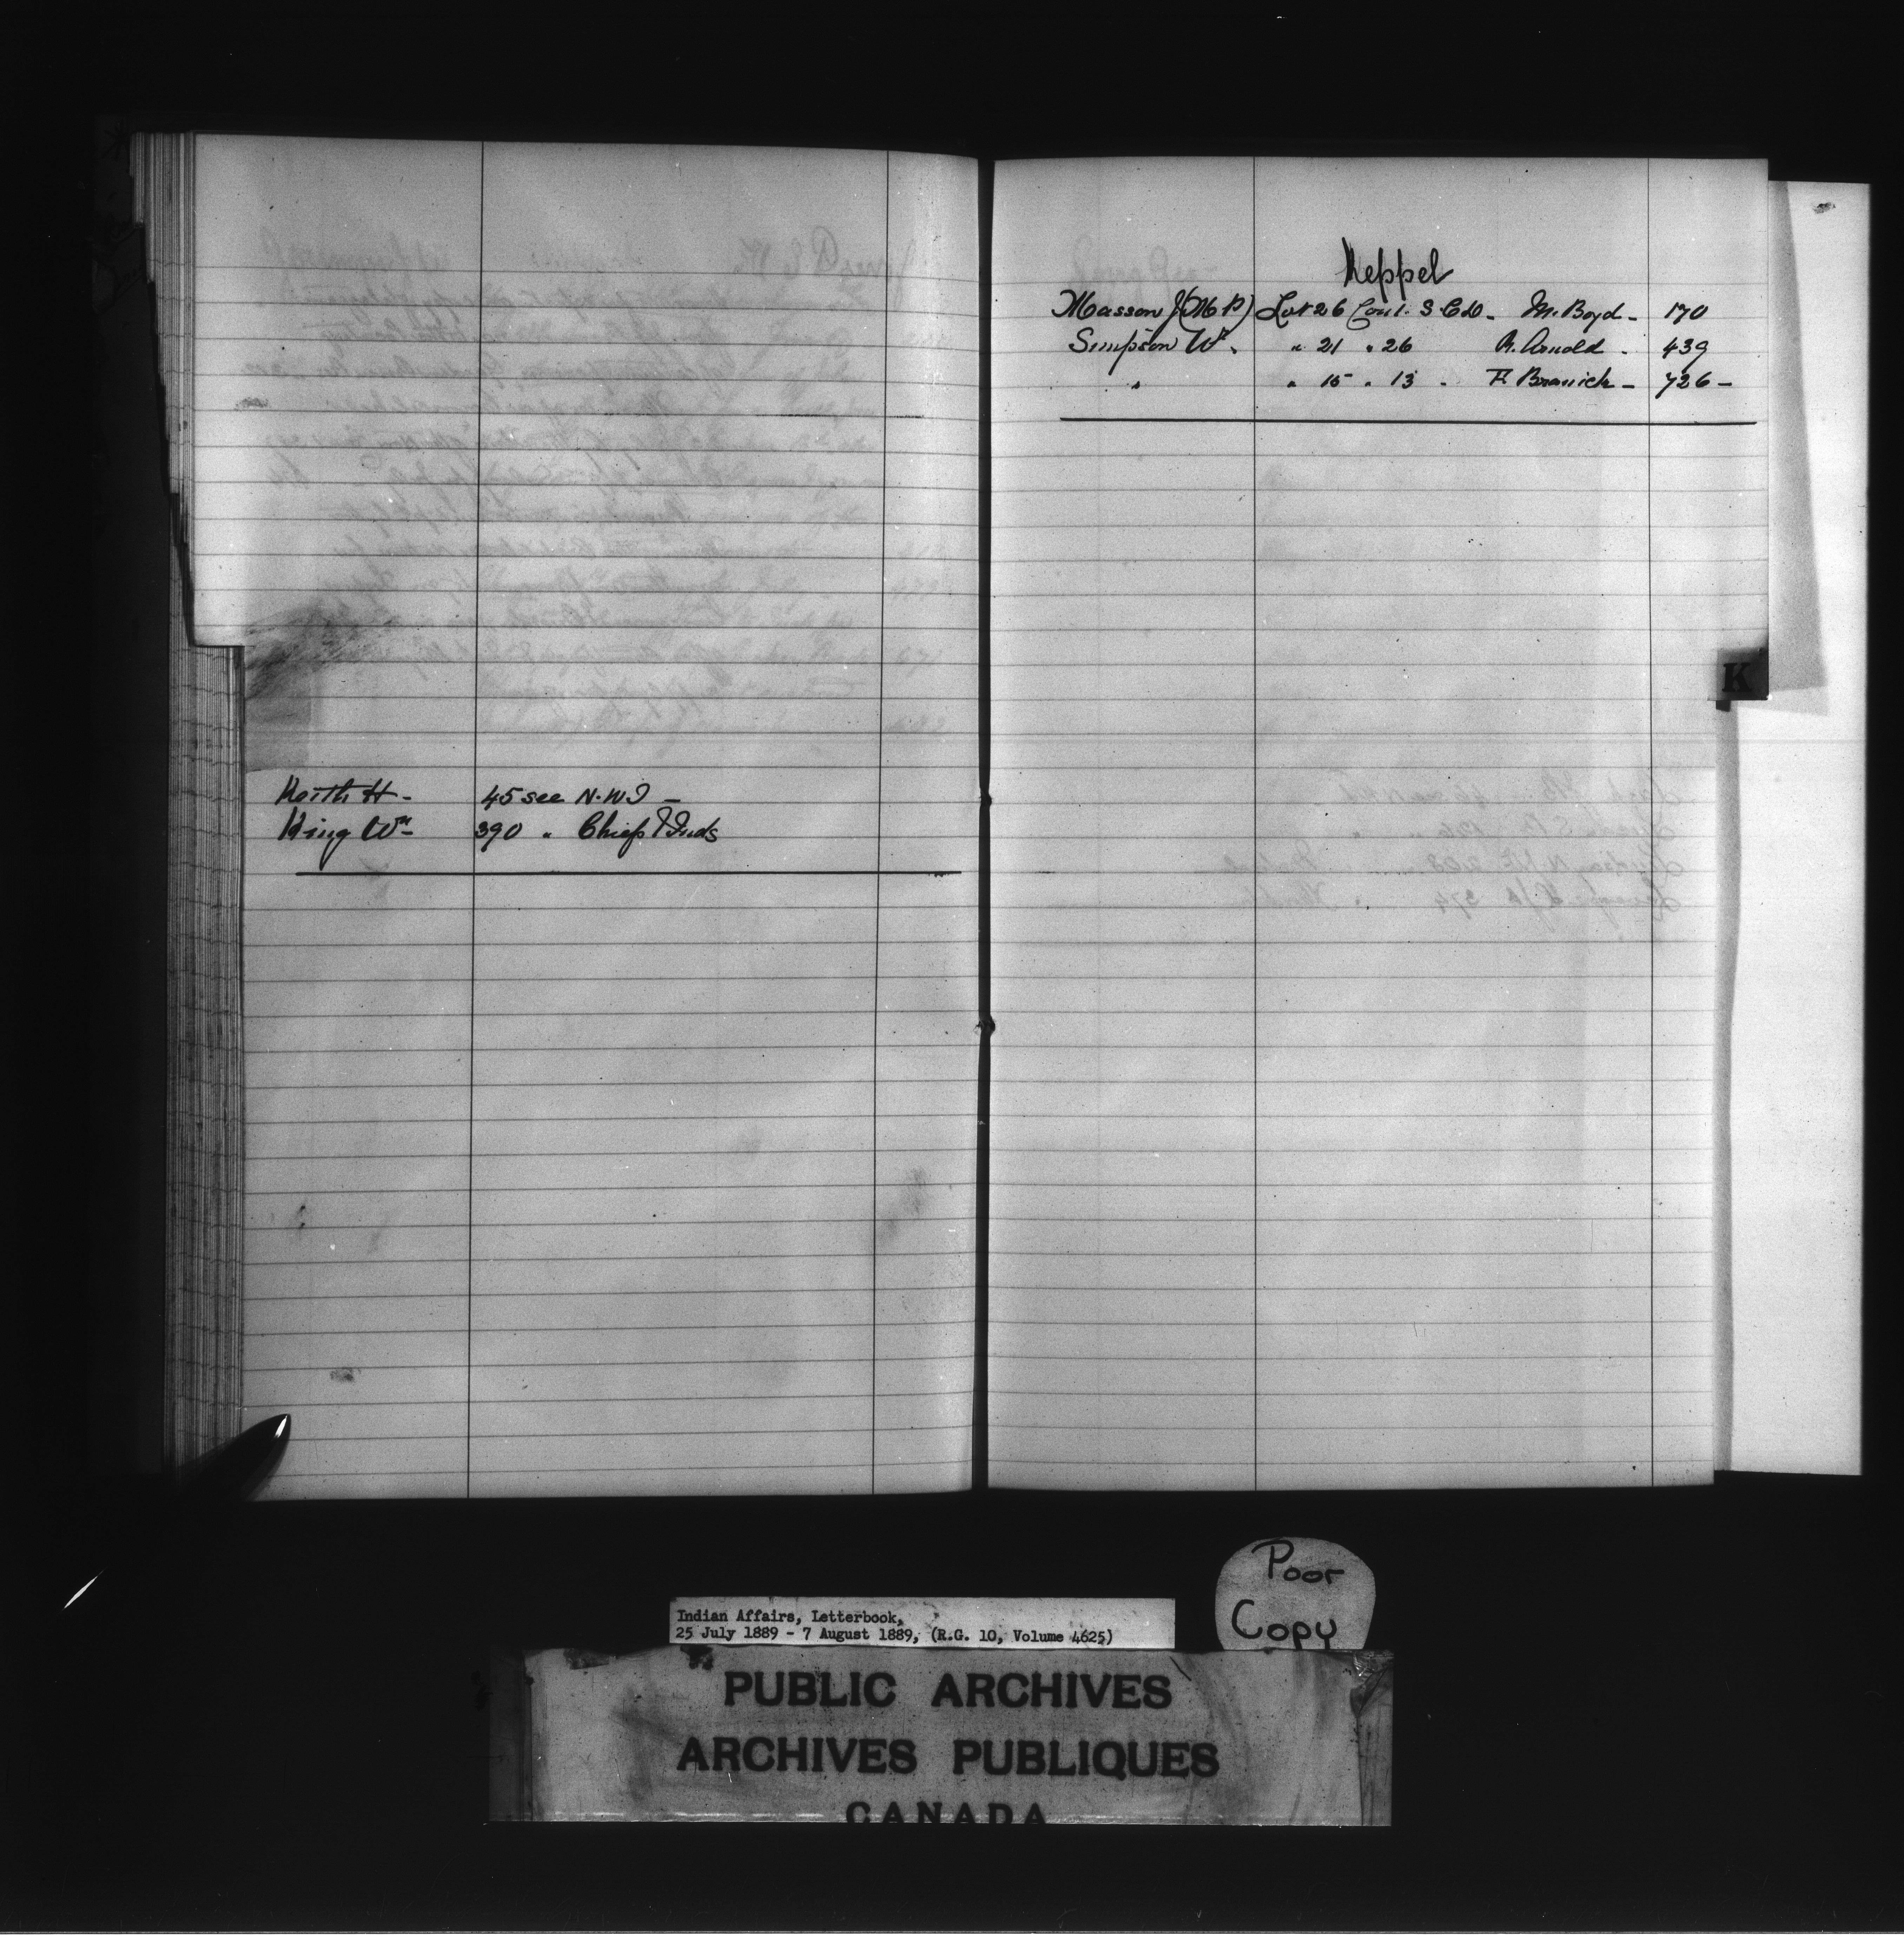 Keith H - 45 see N.W.T -
King Wm - 390 " Chiefs & Inds
Keppel
Masson J (M P) Lot 26 Con 1. S. C. D. - M. Boyd - 170
Simpson Wm. " 21 " 26 R. Arnold - 439
" " 15 " 13 - F. Branick - 726 -
K
Poor
Copy
Indian Affairs, Letterbook,
25 July 1889 - 7 August 1889, (R.G. 10, Volume 4625)
PUBLIC ARCHIVES
ARCHIVES PUBLIQUES
CANADA